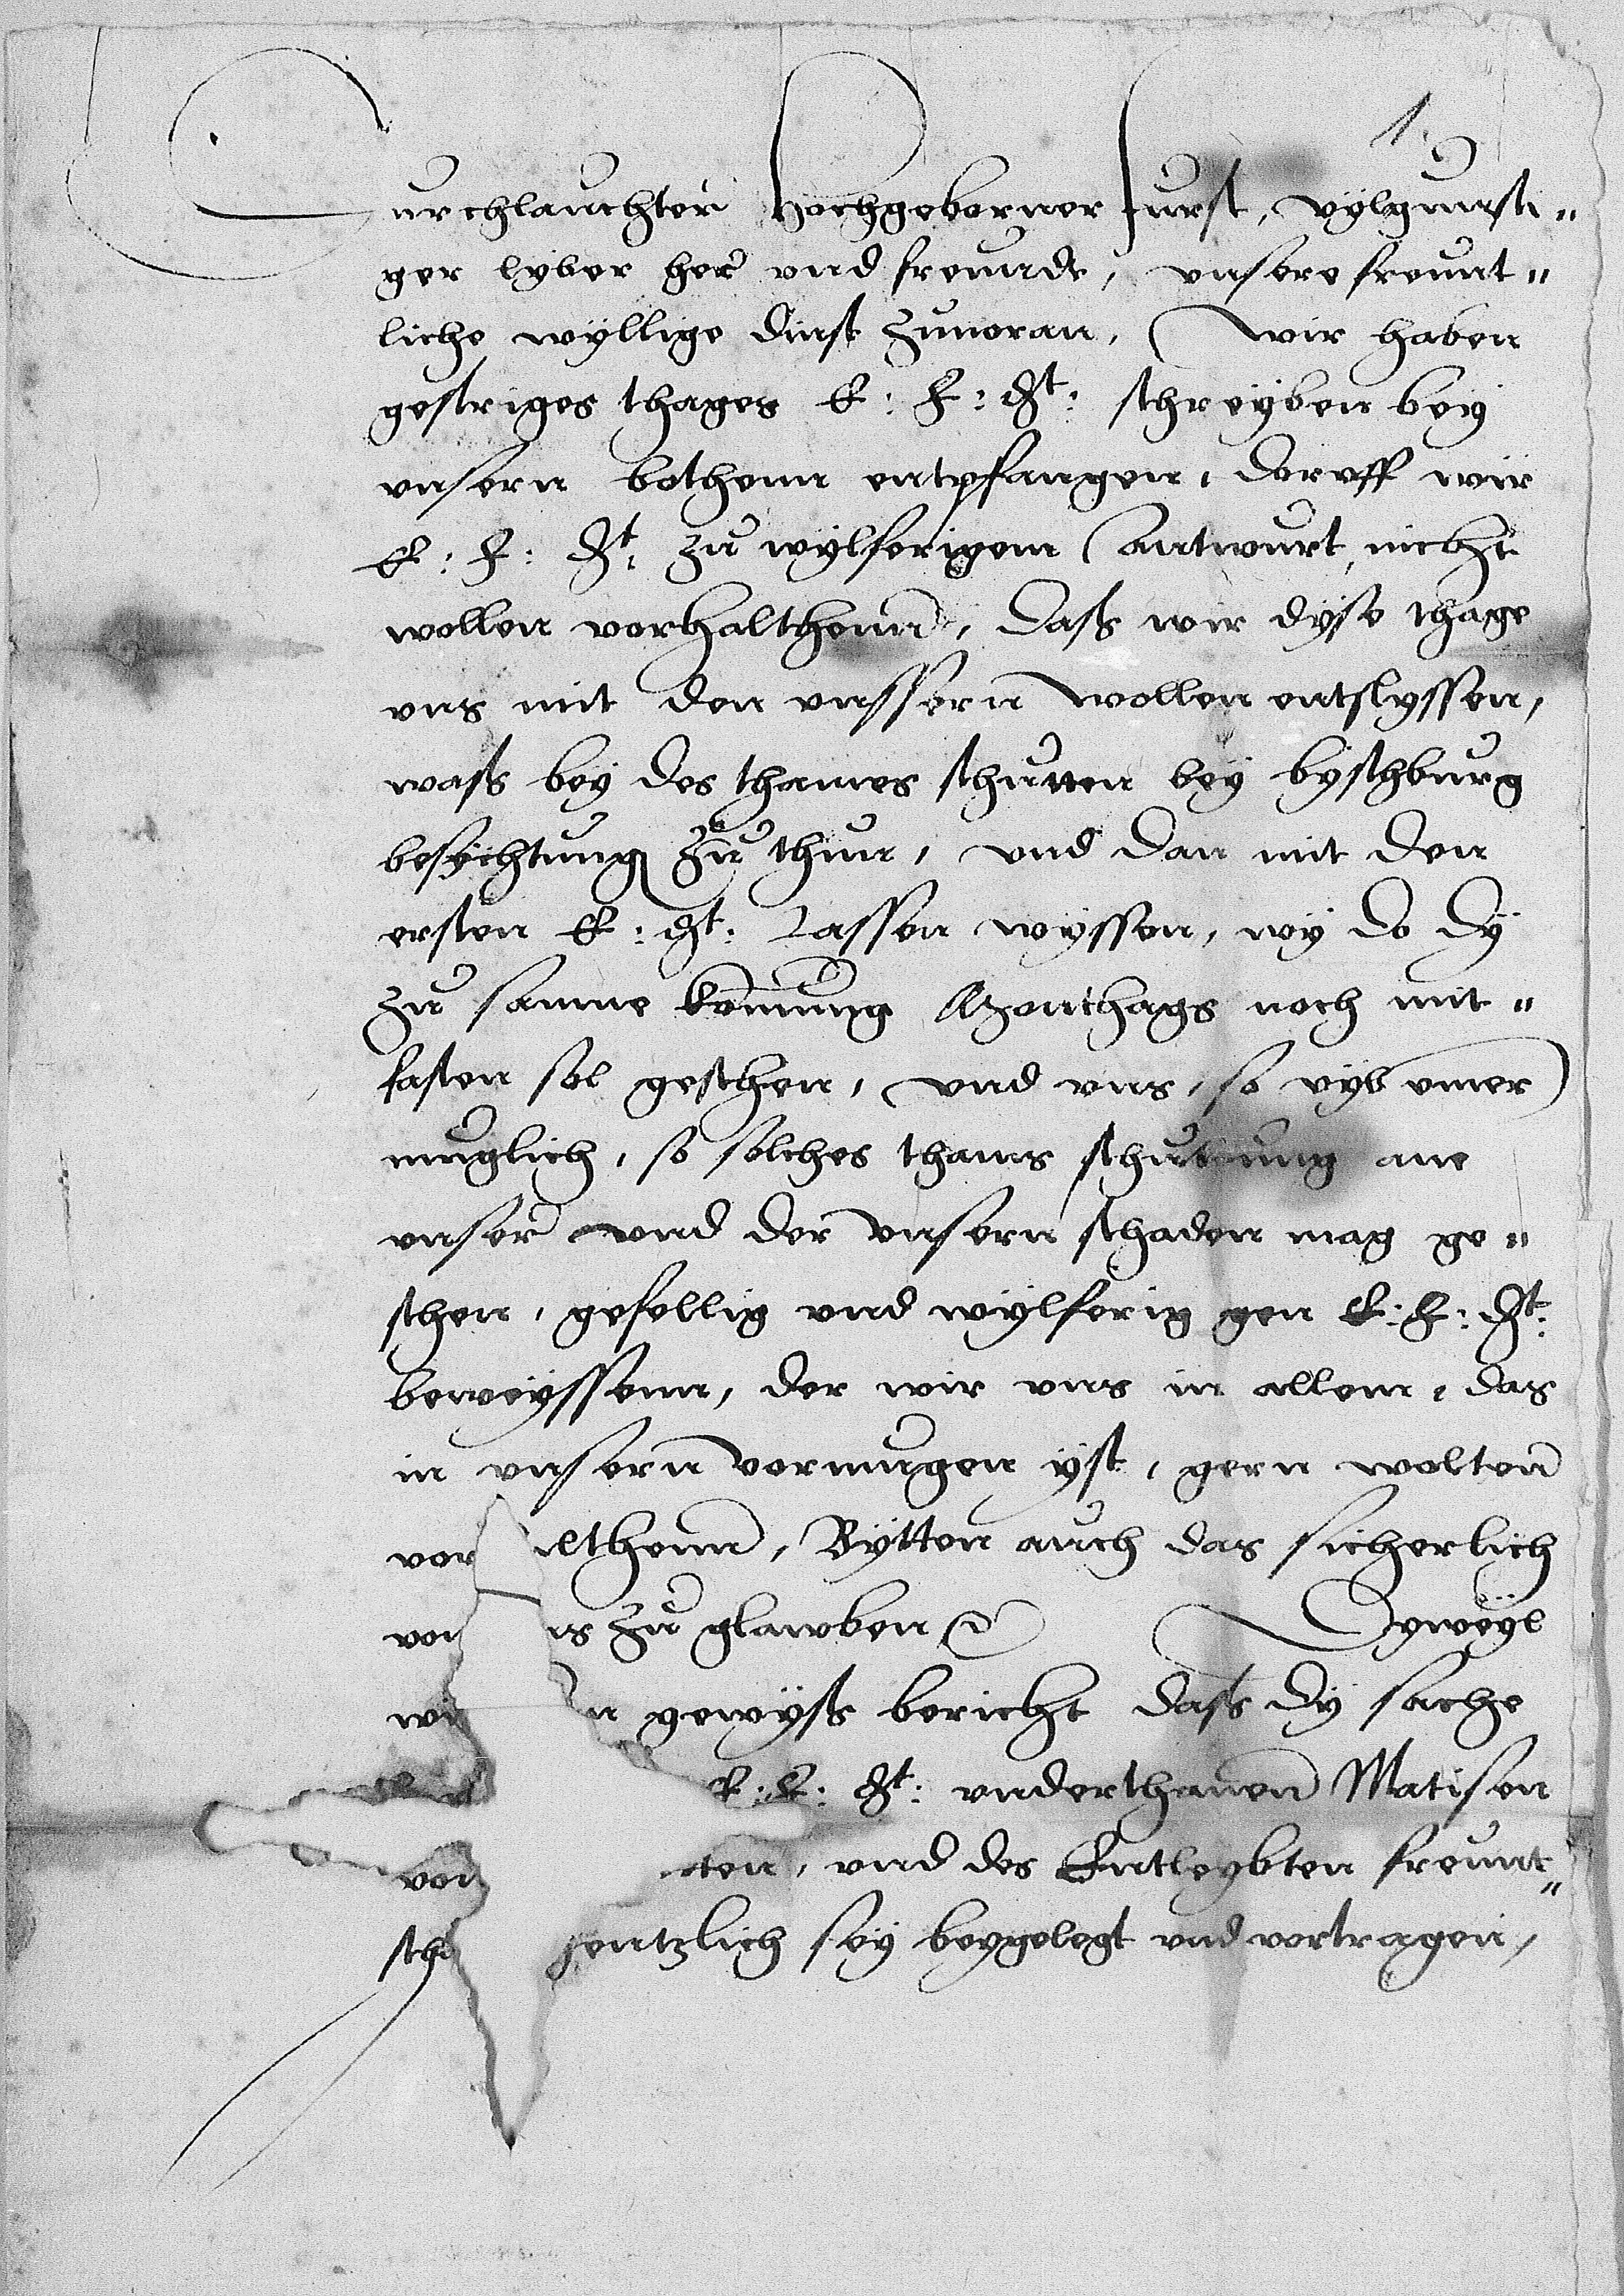 1.
Durchlauchter Hochgeborner furst, vylgunsti„
ger lyber her vnd freunde, vnsere freunt„
liche wyllige dinst zuuoran, Wir haben
gestriges thages E: F: Dt: schreyben bey
vnsern bothenn entpfangen, doruff wir
E: F: Dt: zu wylferigem antwurt, nicht
wollen vorhalthenn, daß wir dyse thage
vns mit den vnssern wollen entslyssen,
waß bey des thames schutten bey byschburg
besychtung zu thun, vnd dan mit den
ersten E: Dt: lassen wyssen, wy do dy
zu samne komung Monthags noch mit„
fasten sol geschen, vnd vns, so vyl vmer
muglich, so solches thams schuttung ane
vnser vnd der vnsern schaden mag ge„
schen, gefellig vnd wylferig gen E: F: Dt:
beweyssenn, der wir vns in allem, das
in vnsern vormugen yst, gern wolten
vor althenn, Bytten auch das sicherlich
von ns zu glawben Dyweyl
wi n gewyß bericht daß dy sache
E: F: Dt: vnderthanen Matisen
von ten, vnd des Entleybten freunt„
scha gentzlich sey beygelegt vnd vortragen,